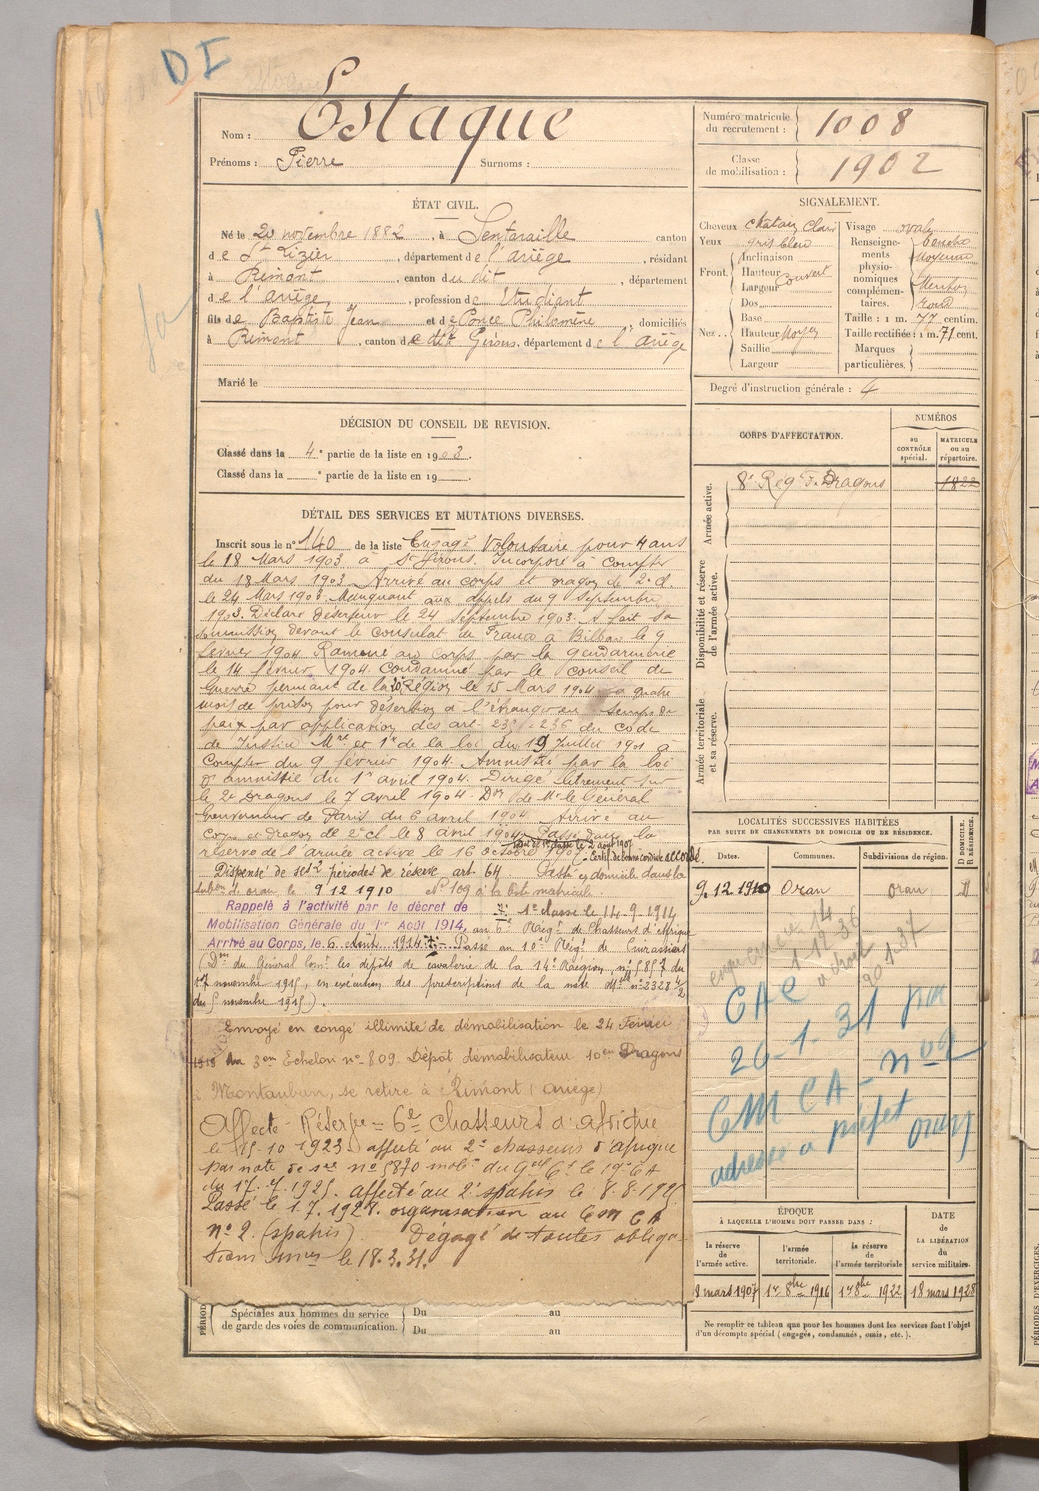 DI
Nom : Estaque
Prénoms : Pierre Surnoms :
Numéro matricule du recrutement : 1008
Classe de mobilisation : 1902
ÉTAT CIVIL.
Né le 20 novembre 1882, à Lentaraille canton
de St Lizier, département de l'ariège, résidant
à Rimont, canton du dit, département
de l'ariège, profession de Etudiant
fils de Baptiste Jean et de Ponce Philomène, domiciliés
à Rimont, canton de St Girons, département de l'ariège
Marié le
SIGNALEMENT.
Cheveux chatain clair
Yeux gris bleu
Front. Inclinaison
Hauteur couvert
Largeur
Nez.. Dos
Base
Hauteur Moyen
Saillie
Largeur
Visage ovale
Renseignements physionomiques complémentaires. bouche
Moyenne
Menton
rond
Taille : 1 m. 77 centim.
Taille rectifiée : 1 m. 71 cent.
Marques particulières.
Degré d'instruction générale : 4
DÉCISION DU CONSEIL DE REVISION.
Classé dans la 4e partie de la liste en 1903.
Classé dans la ° partie de la liste en 19 .
CORPS D'AFFECTATION.
NUMÉROS
au CONTRÔLE spécial.
MATRICULE ou au répertoire.
Armée active.
8e Regt de Dragons 1822
Disponibilité et réserve de l'armée active.
Armée territoriale et sa réserve.
DÉTAIL DES SERVICES ET MUTATIONS DIVERSES.
Inscrit sous le n° 140 de la liste Engagé Volontaire pour 4 ans
le 18 Mars 1903 à St Girons. Incorporé à compter
du 18 Mars 1903. Arrivé au corps et dragon de 2e cl.
le 24 Mars 1903. Manquant aux appels du 9 Septembre
1903. Déclaré déserteur le 24 Septembre 1903. A fait sa
soumission devant le consulat de France à Bilbao le 9
février 1904. Ramené au corps par la gendarmerie
le 14 février 1904. Condamné par le conseil de
Guerre permanent de la 20e Région le 15 Mars 1904 à quatre
mois de prison pour désertion à l'étranger en temps de
paix par application des art. 235 236 du code
de Justice Mre et 1er de la loi du 19 Juillet 1901 à
Compter du 9 février 1904. Amnistié par la loi
d'amnistie du 1er avril 1904. Dirigé librement sur
le 2e Dragons le 7 avril 1904. Don de Mr le Général
Gouverneur de Paris du 6 avril 1904. Arrivé au
Corps et dragon de 2e cl le 8 avril 1904. Passé dans la
soldat de 1e classe le 2 août 1907
réserve de l'armée active le 16 octobre 1907. Certif. de bonne conduite accordé.
Dispensé de ses 2 périodes de réserve art. 64 Passé en domicile dans la
subon d'oran le 9 12 1910 N° 109 à la liste matricule.
Rappelé à l'activité par le décret de
Mobilisation Générale du 1er Août 1914, au 6e Regt de Chasseurs d'Afrique
1e classe le 14-9-1914
Arrivé au Corps, le 6 Août 1914. Passé au 10e Regt de Cuirassiers
(Don du Général Comt les dépôts de cavalerie de la 14e Région, n° 5857 du
17 novembre 1915, en exécution des prescriptions de la note Melle n° 2328 4/2
du 5 novembre 1915).
Envoyé en congé illimité de démobilisation le 24 Février
1919 3em Echelon n° 809. Dépôt démobilisateur 10em Dragons
à Montauban, se retire à Rimont (Ariège)
Affecté Réserve = 6e chasseurs d'afrique
le 15-10 1923. affecté au 2e chasseurs d'afrique
par note de sce n° 5870 mobon du Gal Ct le 19e CA
du 17.7.1925. affecté au 2e spahis le 8.8.1925
Passé le 1.7.1928. organisation au C M C A
n° 2. (spahis). Dégagé de toutes obliga-
tions mres le 18.3.31.
LOCALITÉS SUCCESSIVES HABITÉES
PAR SUITE DE CHANGEMENTS DE DOMICILE OU DE RÉSIDENCE.
Dates. Communes. Subdivisions de région. D DOMICILE. R RÉSIDENCE.
9.12.1910 Oran oran D
CAC
26-1-31 par
n°2
CMCA-
adresse à préfet oran
ÉPOQUE
À LAQUELLE L'HOMME DOIT PASSER DANS :
la réserve de l'armée active.
l'armée territoriale.
la réserve de l'armée territoriale
DATE de LA LIBÉRATION du service militaire.
18 mars 1907 1er 8bre 1916 1er 8bre 1922 18 mars 1928
Ne remplir ce tableau que pour les hommes dont les services font l'objet
d'un décompte spécial (engagés, condamnés, omis, etc.).
Spéciales aux hommes du service
de garde des voies de communication.
Du au
Du au